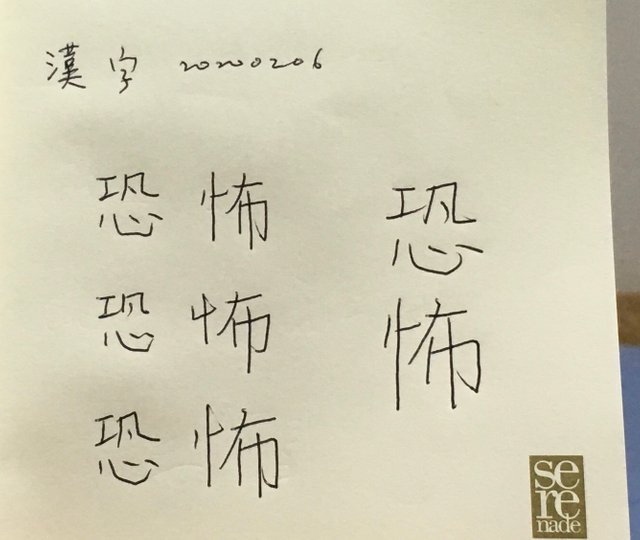 漢字 20200206
恐怖
恐怖
恐怖
恐怖
se
re
nade